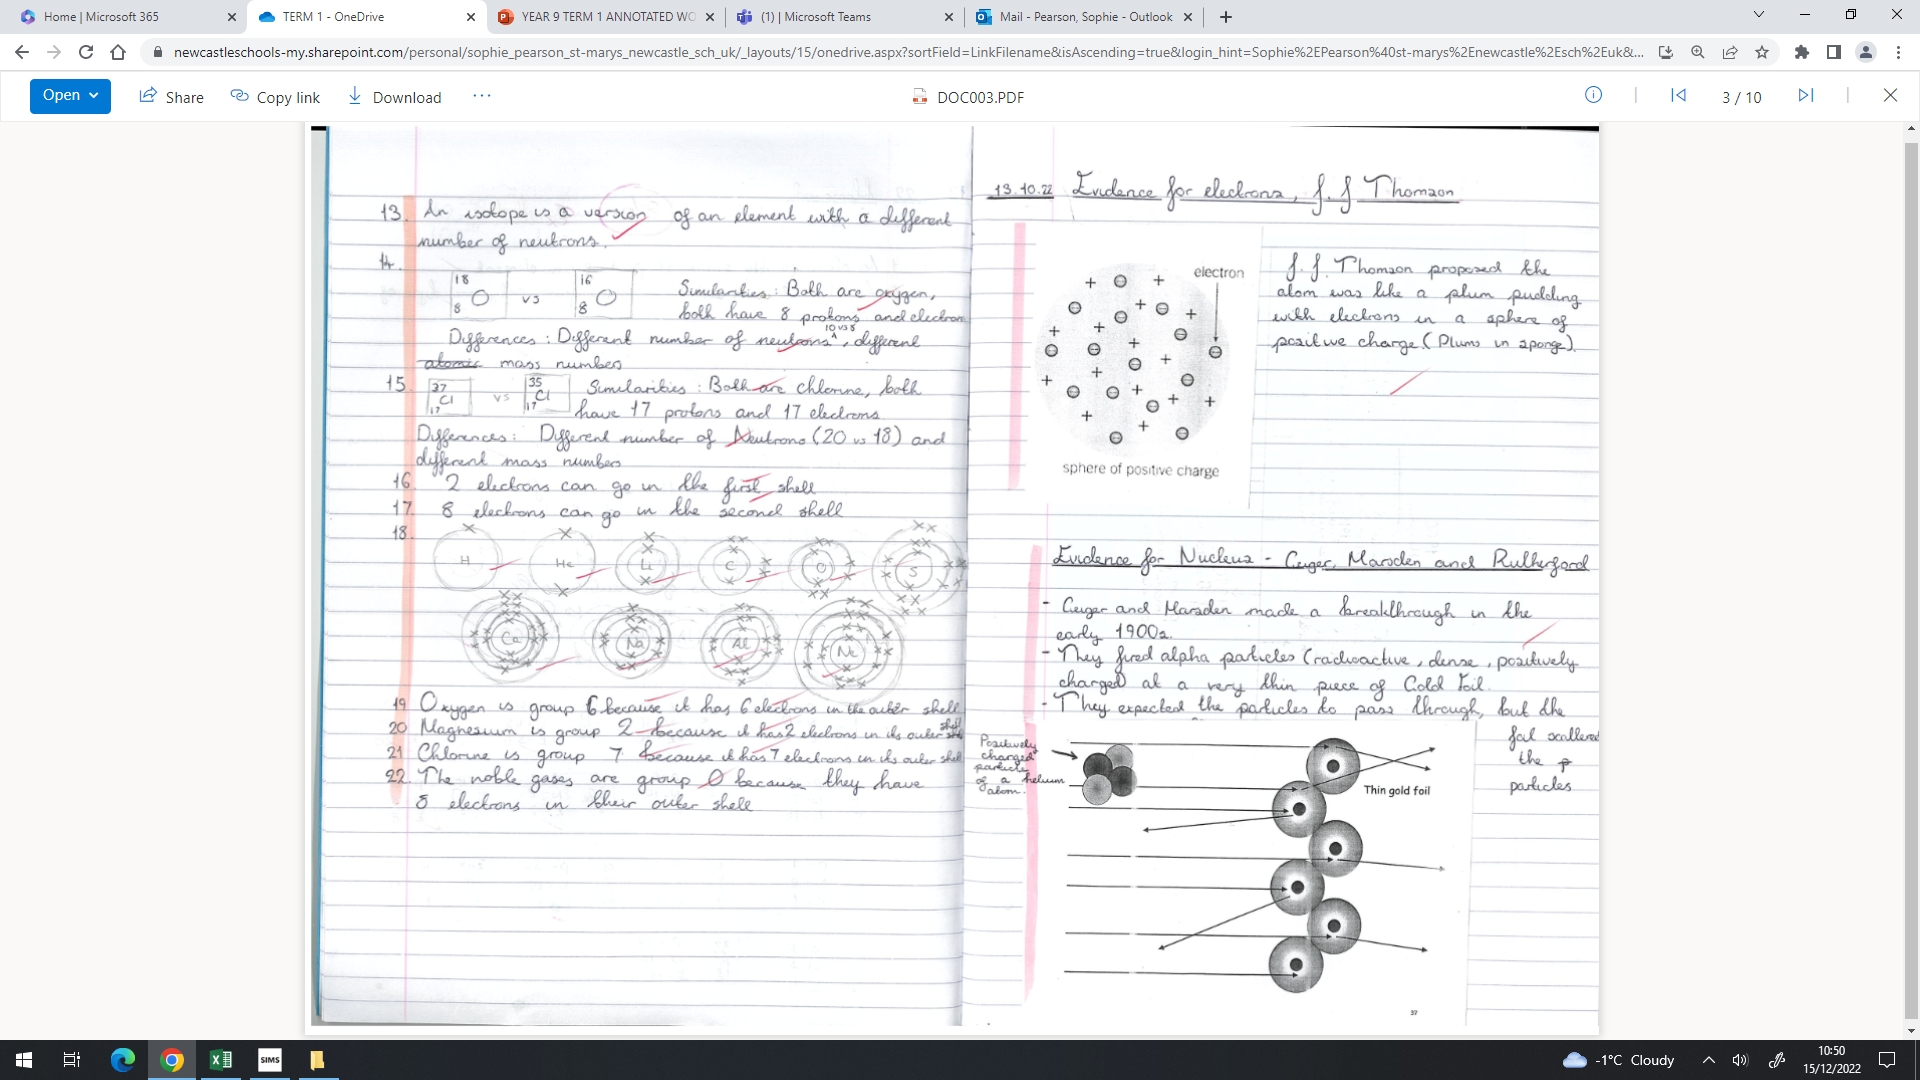 Home | Microsoft 365
TERM 1 - OneDrive
YEAR 9 TERM 1 ANNOTATED WO
(1) | Microsoft Teams
Mail - Pearson, Sophie - Outlook
newcastleschools-my.sharepoint.com/personal/sophie_pearson_st-marys_newcastle_sch_uk/_layouts/15/onedrive.aspx?sortField=LinkFilename&isAscending=true&login_hint=Sophie%2EPearson%40st-marys%2Enewcastle%2Esch%2Euk&...
Open
Share
Copy link
Download
DOC003.PDF
3 / 10
13. An isotope is a version of an element with a different
number of neutrons.
14.
18
8 O vs 16
8 O
Similarities: Both are oxygen,
both have 8 protons and electron
10 vs 8
Differences: Different number of neutrons, different
atomic mass numbers
15. 37
17 Cl vs 35
17 Cl Similarities: Both are chlorine, both
have 17 protons and 17 electrons
Differences: Different number of Neutrons (20 vs 18) and
different mass numbers
16. 2 electrons can go in the first shell
17. 8 electrons can go in the second shell
18.
H He Li C O S
Ca Na Al Ne
19 Oxygen is group 6 because it has 6 electrons in the outer shell
20 Magnesium is group 2 because it has 2 electrons in its outer shell
21 Chlorine is group 7 because it has 7 electrons in its outer shell
22. The noble gases are group 0 because they have
8 electrons in their outer shell
13.10.22 Evidence for electrons, J.J Thomson
electron
sphere of positive charge
J.J. Thomson proposed the
atom was like a plum pudding
with electrons in a sphere of
positive charge. (Plums in sponge).
Evidence for Nucleus - Geiger, Marsden and Rutherford
- Geiger and Marsden made a breakthrough in the
early 1900s.
- They fired alpha particles (radioactive, dense, positively
charged) at a very thin piece of Gold Foil.
- They expected the particles to pass through, but the
foil scattered
the p
particles
Positively
charged
particle
of a helium
atom.
Thin gold foil
37
SIMS
-1°C Cloudy
10:50
15/12/2022